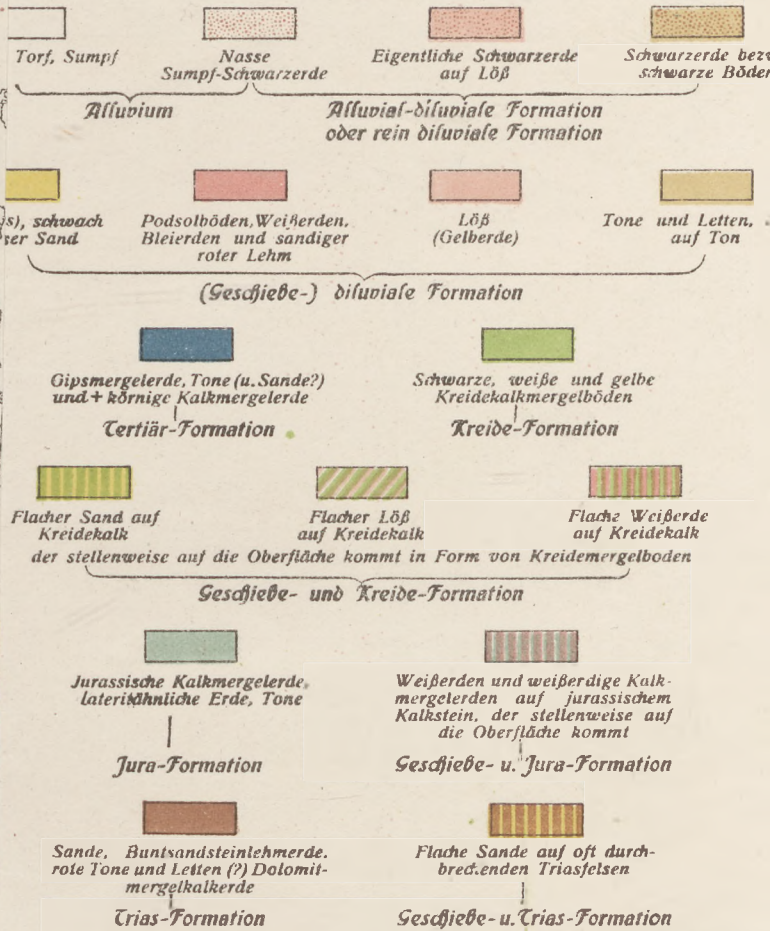 Torf, Sumpf
Nasse
Sumpf-Schwarzerde
Eigentliche Schwarzerde
auf Löß
Schwarzerde
schwarze
Alluvium
Alluvial-diluviale Formation
oder rein diluviale Formation
schwach
Sand
Podsolböden, Weißerden,
Bleierden und sandiger
roter Lehm
Löß
(Gelberde)
Tone und Letten,
auf Ton
(Geschiebe-) diluviale Formation
Gipsmergelerde, Tone (u. Sande?)
und + körnige Kalkmergelerde
Tertiär-Formation
Schwarze, weiße und gelbe
Kreidekalkmergelböden
Kreide-Formation
Flacher Sand auf
Kreidekalk
Flacher Löß
auf Kreidekalk
Flache Weißerde
auf Kreidekalk
der stellenweise auf die Oberfläche kommt in Form von Kreidemergelboden
Geschiebe- und Kreide-Formation
Jurassische Kalkmergelerde,
lateritähnliche Erde, Tone
Jura-Formation
Weißerden und weißerdige Kalk-
mergelerden auf jurassischem
Kalkstein, der stellenweise auf
die Oberfläche kommt
Geschiebe- u. Jura-Formation
Sande, Buntsandsteinlehmerde.
rote Tone und Letten (?) Dolomit-
mergelkalkerde
Trias-Formation
Flache Sande auf oft durch-
brechenden Triasfelsen
Geschiebe- u. Trias-Formation